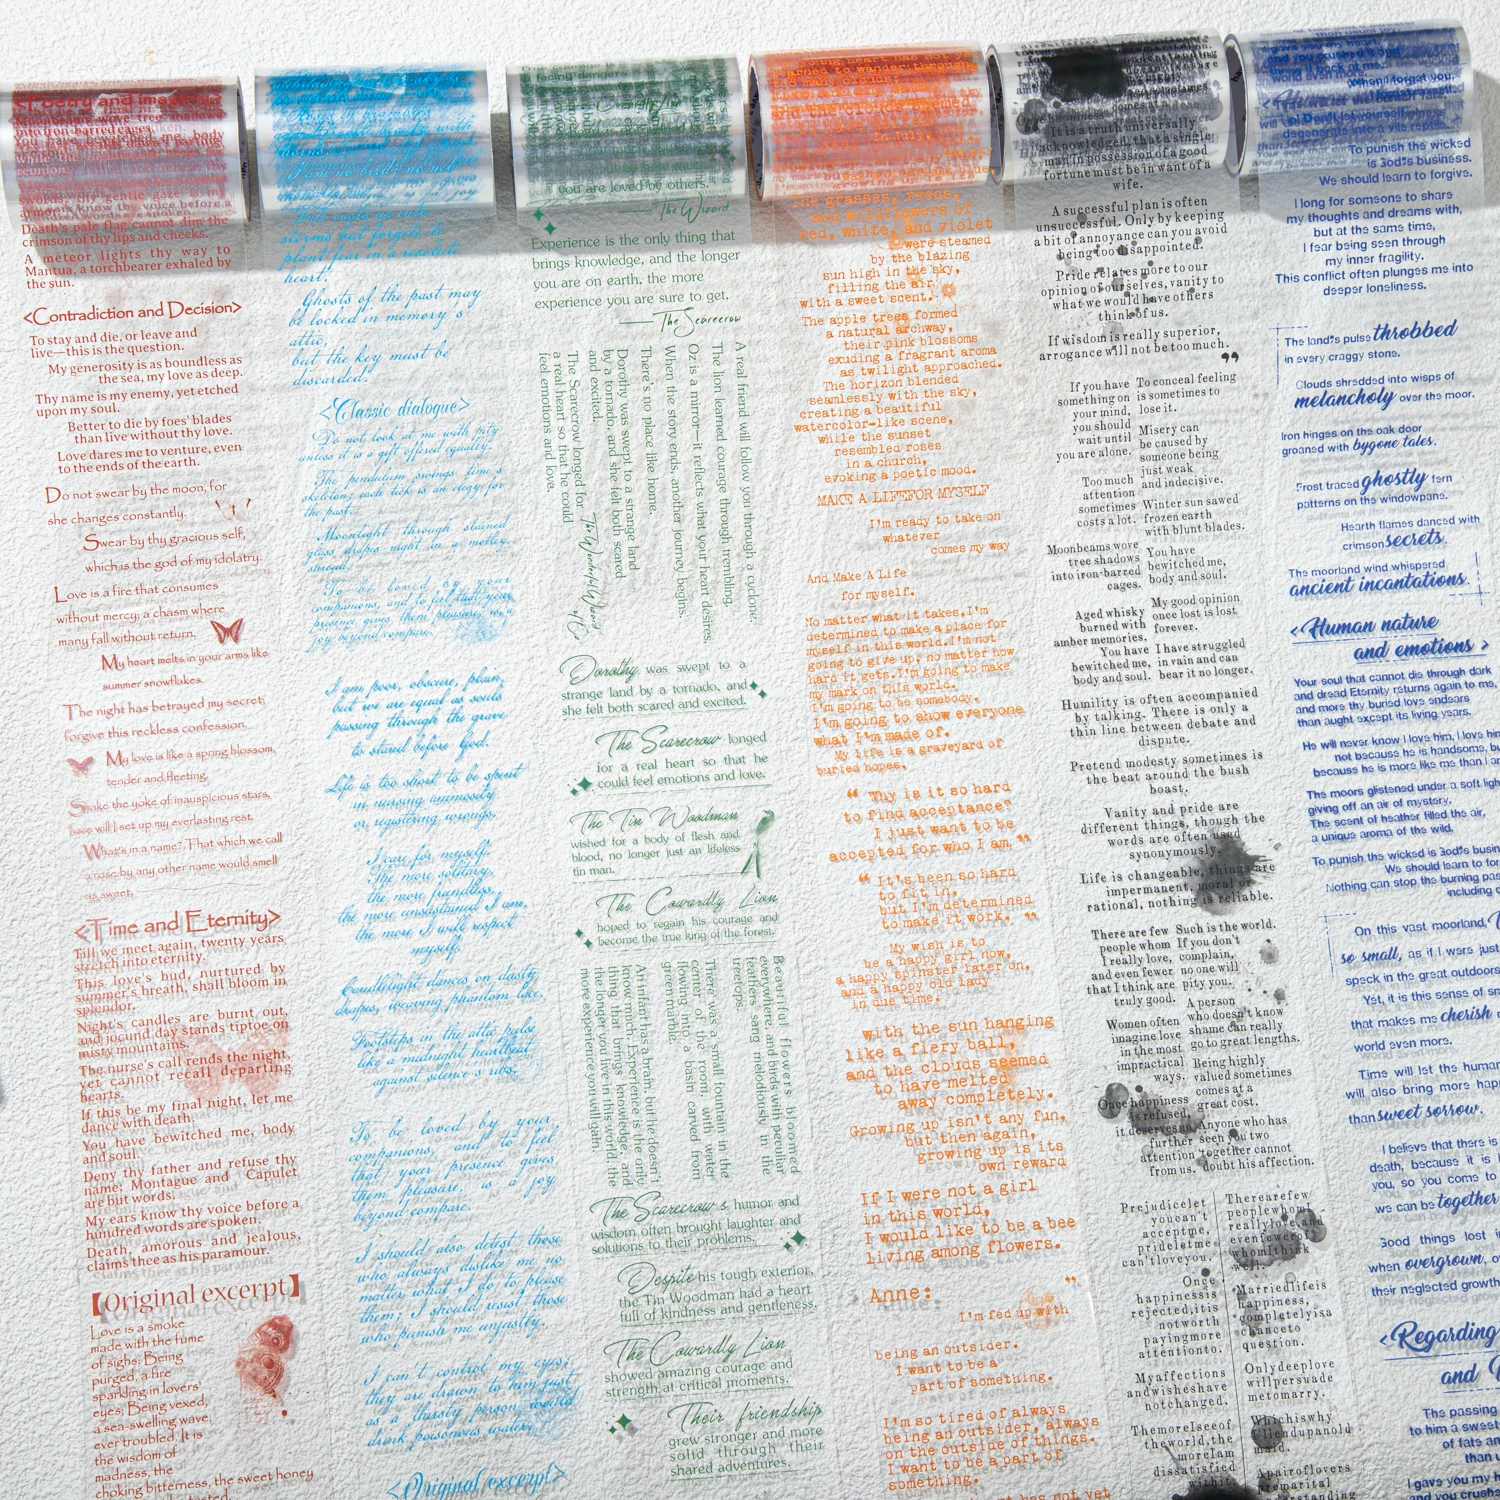 <Poetry and imagery>
Moonbeams wove tree shadows
into iron-barred cages.
You have bewitched me, body
reunion.
swords, thy gentle gaze, is my
armor.
Death's pale flag cannot dim the
crimson of thy lips and cheeks.
A meteor lights thy way to
Mantua, a torchbearer exhaled by
the sun.
<Contradiction and Decision>
To stay and die, or leave and
live—this is the question.
My generosity is as boundless as
the sea, my love as deep.
Thy name is my enemy, yet etched
upon my soul.
Better to die by foes' blades
than live without thy love.
Love dares me to venture, even
to the ends of the earth.
Do not swear by the moon, for
she changes constantly.
Swear by thy gracious self,
which is the god of my idolatry.
Love is a fire that consumes
without mercy; a chasm where
many fall without return.
My heart melts in your arms like
summer snowflakes.
The night has betrayed my secret;
forgive this reckless confession.
My love is like a spring blossom,
tender and fleeting.
Shake the yoke of inauspicious stars,
here will I set up my everlasting rest.
What's in a name? That which we call
a rose by any other name would smell
as sweet.
<Time and Eternity>
Till we meet again, twenty years
stretch into eternity.
This love's bud, nurtured by
summer's breath, shall bloom in
splendor.
Night's candles are burnt out,
and jocund day stands tiptoe on
misty mountains.
The nurse's call rends the night,
yet cannot recall departing
hearts.
If this be my final night, let me
dance with death.
You have bewitched me, body
and soul.
Deny thy father and refuse thy
name; Montague and Capulet
are but words.
My ears know thy voice before a
hundred words are spoken.
Death, amorous and jealous,
claims thee as his paramour.
【Original excerpt】
Love is a smoke
made with the fume
of sighs; Being
purged, a fire
sparkling in lovers'
eyes; Being vexed,
a sea-swelling wave,
ever troubled. It is
the wisdom of
madness, the
choking bitterness, the sweet honey
storms but forgets to
plant fear in a resolute
heart.
Ghosts of the past may
be locked in memory's
attic,
but the key must be
discarded.
<Classic dialogue>
Do not look at me with pity
unless it is a gift offered equally.
The pendulum swings: time's
skeleton; each tick is an elegy for
the past.
Moonlight through stained
glass drapes night in a motley
shroud.
To be loved by your
companions, and to feel that your
presence gives them pleasure, is a
joy beyond compare.
I am poor, obscure, plain,
but we are equal as souls
passing through the grave
to stand before God.
Life is too short to be spent
in nursing animosity
or registering wrongs.
I care for myself.
The more solitary,
the more friendless,
the more unsustained I am,
the more I will respect
myself.
Candlelight dances on dusty
drapes, weaving phantom lace.
Footsteps in the attic pulse
like a midnight heartbeat
against silence's ribs.
To be loved by your
companions, and to feel
that your presence gives
them pleasure, is a joy
beyond compare.
I should also detest those
who always dislike me no
matter what I do to please
them; I should resist those
who punish me unjustly.
I can't control my eyes;
they are drawn to him just
as a thirsty person would
drink poisonous water.
<Original excerpt>
you are loved by others.
— The Wizard
Experience is the only thing that
brings knowledge, and the longer
you are on earth, the more
experience you are sure to get.
— The Scarecrow
A real friend will follow you through a cyclone.
The lion learned courage through trembling.
Oz is a mirror—it reflects what your heart desires.
When the story ends, another journey begins.
There's no place like home.
Dorothy was swept to a strange land
by a tornado, and she felt both scared
and excited.
The Scarecrow longed for
a real heart so that he could
feel emotions and love.
The Wonderful Wizard
of Oz
Dorothy was swept to a
strange land by a tornado, and
she felt both scared and excited.
The Scarecrow longed
for a real heart so that he
could feel emotions and love.
The Tin Woodman
wished for a body of flesh and
blood, no longer just an lifeless
tin man.
The Cowardly Lion
hoped to regain his courage and
become the true king of the forest.
Beautiful flowers bloomed
everywhere, and birds with peculiar
feathers sang melodiously in the
treetops.
There was a small fountain in the
center of the room, with water
flowing into a basin carved from
green marble.
An infant has a brain, but he doesn't
know much. Experience is the only
thing that brings knowledge, and
the longer you live in this world, the
more experience you will gain.
The Scarecrow's humor and
wisdom often brought laughter and
solutions to their problems.
Despite his tough exterior,
the Tin Woodman had a heart
full of kindness and gentleness.
The Cowardly Lion
showed amazing courage and
strength at critical moments.
Their friendship
grew stronger and more
solid through their
shared adventures.
The grasses, reeds,
and wildflowers of
red, white, and violet
were steamed
by the blazing
sun high in the sky,
filling the air
with a sweet scent.
The apple trees formed
a natural archway,
their pink blossoms
exuding a fragrant aroma
as twilight approached.
The horizon blended
seamlessly with the sky,
creating a beautiful
watercolor-like scene,
while the sunset
resembled roses
in a church,
evoking a poetic mood.
MAKE A LIFEFOR MYSELF
I'm ready to take on
whatever
comes my way
And Make A Life
for myself.
No matter what it takes,I'm
determined to make a place for
myself in this world.I'm not
going to give up, no matter how
hard it gets.I'm going to make
my mark on this world.
I'm going to be somebody.
I'm going to show everyone
what I'm made of.
My life is a graveyard of
buried hopes.
“ Why is it so hard
to find acceptance?
I just want to be
accepted for who I am ”
“ It's been so hard
to fit in,
but I'm determined
to make it work. ”
My wish is to
be a happy girl now,
a happy spinster later on,
and a happy old lady
in due time.
with the sun hanging
like a fiery ball,
and the clouds seemed
to have melted
away completely.
Growing up isn't any fun,
but then again,
growing up is its
own reward
If I were not a girl
in this world,
I would like to be a bee
living among flowers.
”
Anne:
I'm fed up with
being an outsider.
I want to be a
part of something.
I'm so tired of always
being an outsider, always
on the outside of things.
I want to be a part of
something.
It is a truth universally
acknowledged, that a single
man in possession of a good
fortune must be in want of a
wife.
A successful plan is often
unsuccessful. Only by keeping
a bit of annoyance can you avoid
being too disappointed.
Pride relates more to our
opinion of ourselves, vanity to
what we would have others
think of us.
If wisdom is really superior,
arrogance will not be too much.
”
If you have
something on
your mind,
you should
wait until
you are alone.
Too much
attention
sometimes
costs a lot.
Moonbeams wove
tree shadows
into iron-barred
cages.
Aged whisky
burned with
amber memories.
You have
bewitched me,
body and soul.
To conceal feeling
is sometimes to
lose it.
Misery can
be caused by
someone being
just weak
and indecisive.
Winter sun sawed
frozen earth
with blunt blades.
You have
bewitched me,
body and soul.
My good opinion
once lost is lost
forever.
I have struggled
in vain and can
bear it no longer.
Humility is often accompanied
by talking. There is only a
thin line between debate and
dispute.
Pretend modesty sometimes is
the beat around the bush
boast.
Vanity and pride are
different things, though the
words are often used
synonymously.
Life is changeable, things are
impermanent, moral or
rational, nothing is reliable.
There are few
people whom
I really love,
and even fewer
that I think are
truly good.
Women often
imagine love
in the most
impractical
ways.
Once happiness
is refused,
it deserves no
further
attention
from us.
Such is the world.
If you don't
complain,
no one will
pity you.
A person
who doesn't know
shame can really
go to great lengths.
Being highly
valued sometimes
comes at a
great cost.
Anyone who has
seen you two
together cannot
doubt his affection.
Prejudicelet
youcan't
acceptme,
prideletme
can'tloveyou.
Once
happinessis
rejected,itis
notworth
payingmore
attentionto.
Myaffections
andwisheshave
notchanged.
ThemoreIseeof
theworld,the
moreIam
dissatisfied
withit.
Therearefew
peoplewhom
reallylove,and
evenfewerof
whomIthink
well.
Marriedlifeis
happiness,
completelyisa
chanceto
question.
Onlydeeplove
willpersuade
metomarry.
Whichiswhy
Illendupanold
maid.
Apairoflovers
premarital
To punish the wicked
is God's business.
We should learn to forgive.
I long for someone to share
my thoughts and dreams with,
but at the same time,
I fear being seen through
my inner fragility.
This conflict often plunges me into
deeper loneliness.
The land's pulse throbbed
in every craggy stone.
Clouds shredded into wisps of
melancholy over the moor.
Iron hinges on the oak door
groaned with bygone tales.
Frost traced ghostly fern
patterns on the windowpane.
Hearth flames danced with
crimson secrets.
The moorland wind whispered
ancient incantations.
<Human nature
and emotions >
Your soul that cannot die through dark
and dread Eternity returns again to me,
and more thy buried love endears
than aught except its living years.
He will never know I love him, I love him
not because he is handsome, but
because he is more like me than I am
The moors glistened under a soft light
giving off an air of mystery.
The scent of heather filled the air,
a unique aroma of the wild.
To punish the wicked is God's business
We should learn to forgive
Nothing can stop the burning
including
On this vast moorland, I
so small, as if I were just
speck in the great outdoors
Yet, it is this sense of
that makes me cherish
world even more.
Time will let the human
will also bring more
than sweet sorrow.
I believe that there is
death, because it is
you, so you come to
we can be together
Good things lost in
when overgrown,
their neglected growth
<Regarding
and
The passing
to him a sweet
of fats an
than u
I gave you my h
and you crushed